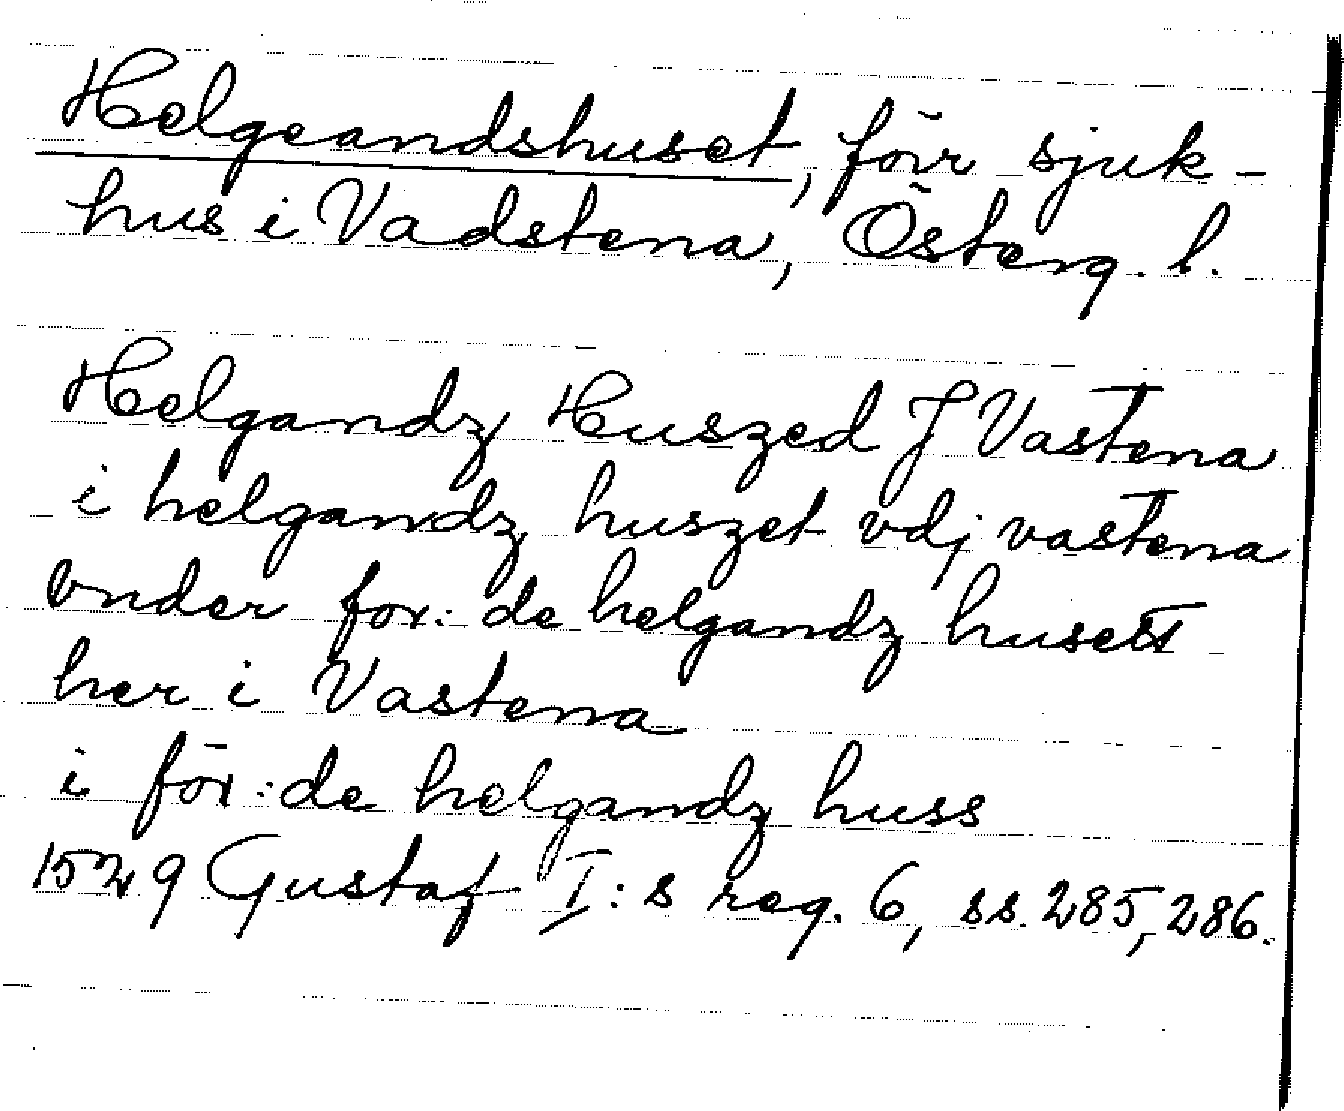 Helgeandshuset, förr sjuk-
hus i Vadstena, Österg. l.
Helgandz Huszed J Vastena
i helgandz huszet vdj vastena
vnder for:de helgandz husett
her i Vastena
i för:de helgandz huss
1529 Gustaf I:s reg. 6, ss. 285, 286.